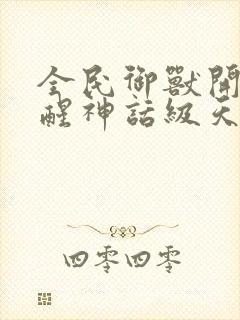 全民御獸開
醒神話級天
四零四零